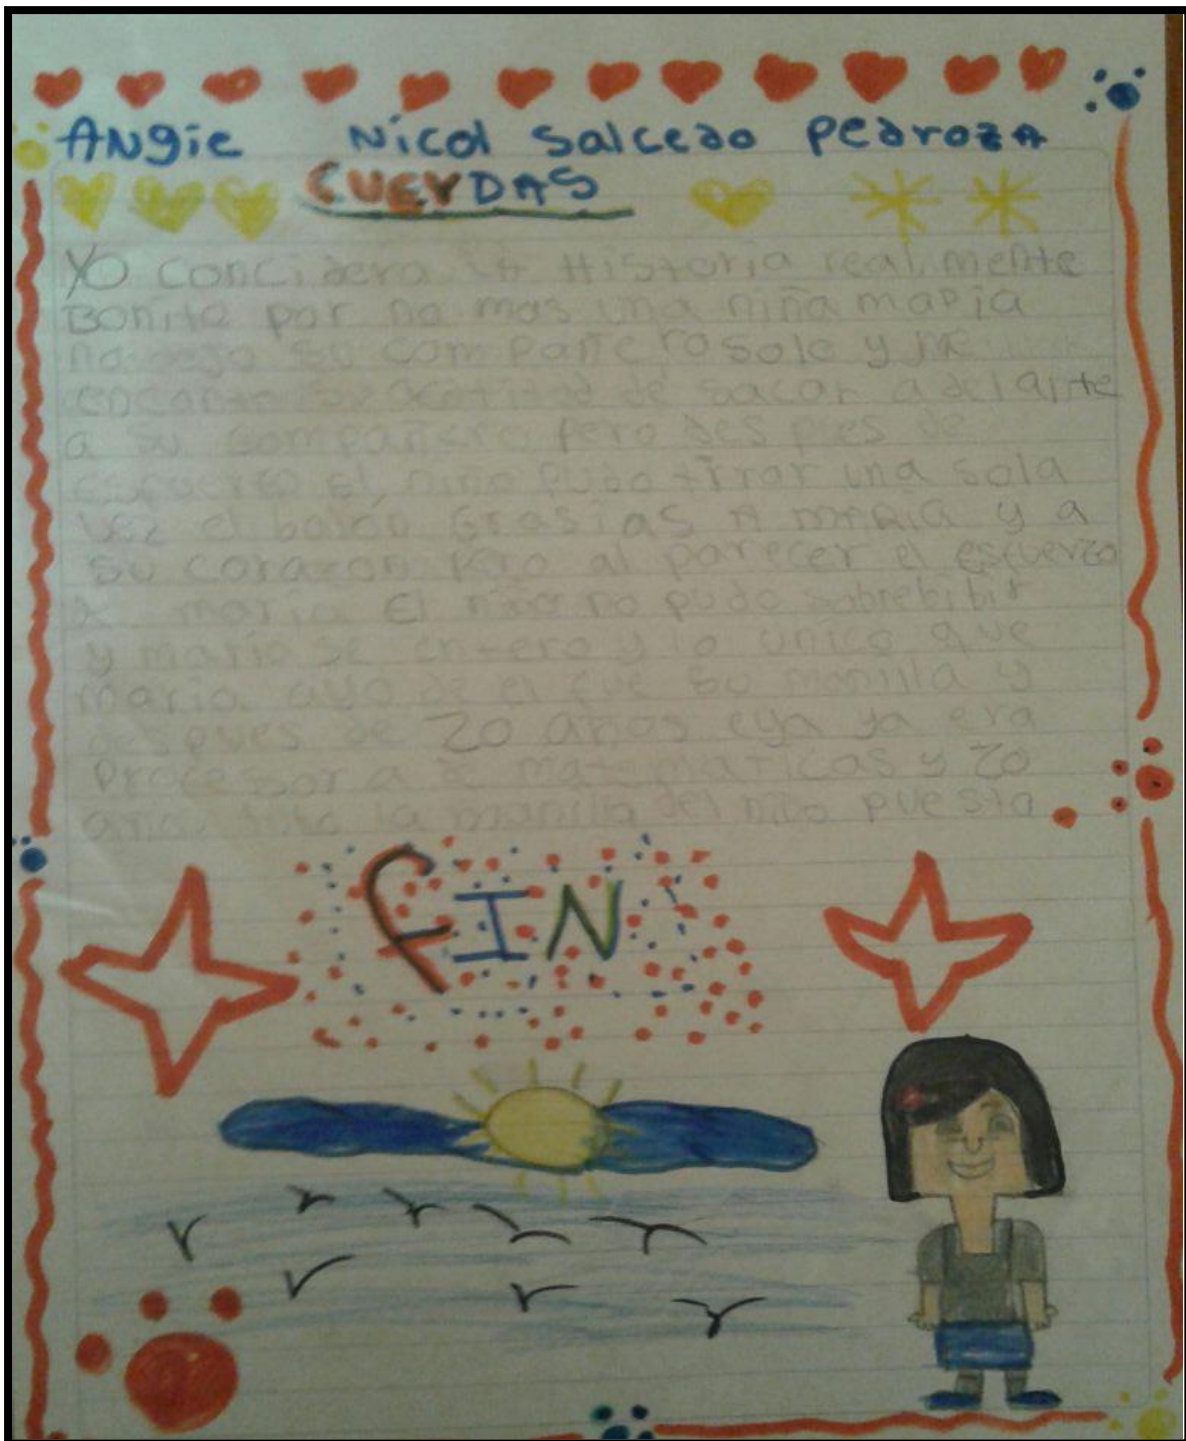 ANgie Nicol Salcedo Pedroza
CUERDAS
YO concidero la Historia realmente
Bonita por no mas una niña maria
no dejo su compañero solo y me
encanto su actitud de sacar adelante
a su compañero pero des pues de
esfuerzo el niño pudo tirar una sola
vez el balón Grasias A maria y a
su corazon pero al parecer el esfuerzo
maria El niño no pudo sobrebibir
y maria se entero y lo unico que
maria de el fue su manilla y
despues de 20 años eya ya era
Profesora de matematicas y 20
años la manilla del niño puesta
FIN